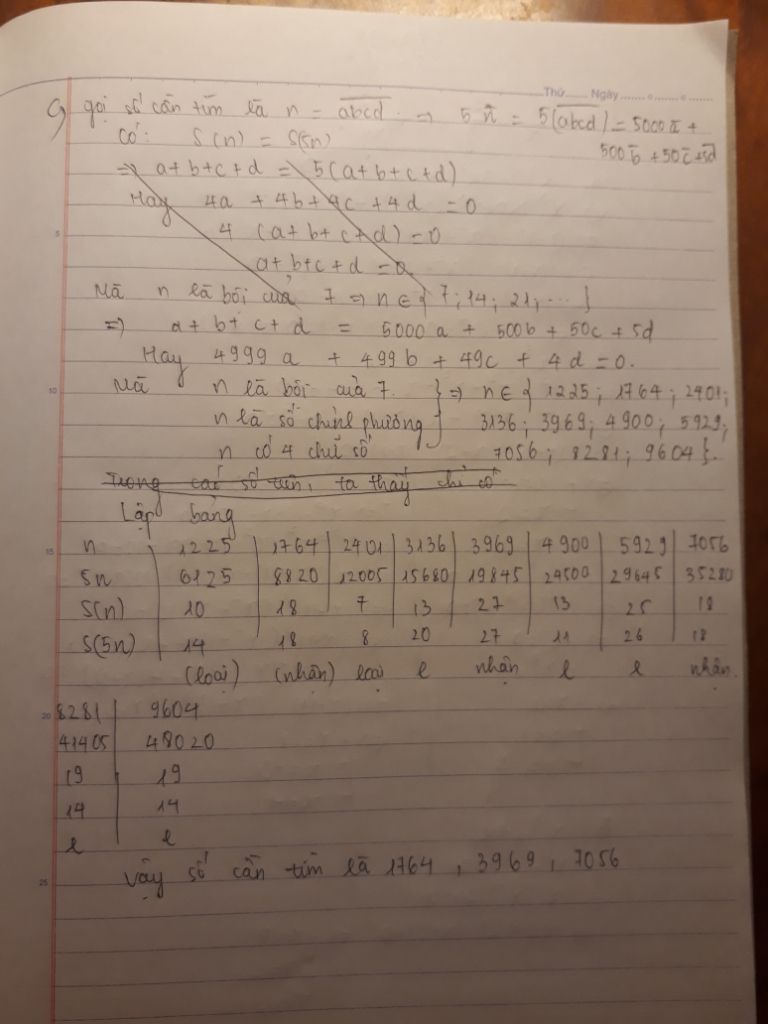 Thứ ...... Ngày ...... o ...... o ......
gọi số cần tìm là n = abcd ⇒ 5n = 5(abcd) = 5000a +
500b + 50c + 5d
Có: S(n) = S(5n)
⇒ a+b+c+d = 5(a+b+c+d)
Hay 4a + 4b + 4c + 4d = 0
4 (a+b+c+d) = 0
5
a+b+c+d = 0
Mà n là bội của 7 ⇒ n ∈ { 7; 14; 21; ... }
⇒ a+b+c+d = 5000a + 500b + 50c + 5d
Hay 4999a + 499b + 49c + 4d = 0.
10
Mà n là bội của 7. } ⇒ n ∈ { 1225; 1764; 2401;
n là số chính phương } 3136; 3969; 4900; 5929;
n có 4 chữ số 7056; 8281; 9604 }.
Trong các số trên, ta thấy chỉ có
Lập bảng
15
n | 1225 | 1764 | 2401 | 3136 | 3969 | 4900 | 5929 | 7056
5n 6125 | 8820 | 12005 | 15680 | 19845 | 24500 | 29645 | 35280
S(n) 10 | 18 | 7 | 13 | 27 | 13 | 25 | 18
S(5n) 14 18 8 20 27 11 26 18
(loại) (nhận) loại l nhận l l nhận.
20
8281 | 9604
41405 | 48020
19 | 19
14 | 14
l | l
Vậy số cần tìm là 1764, 3969, 7056
25